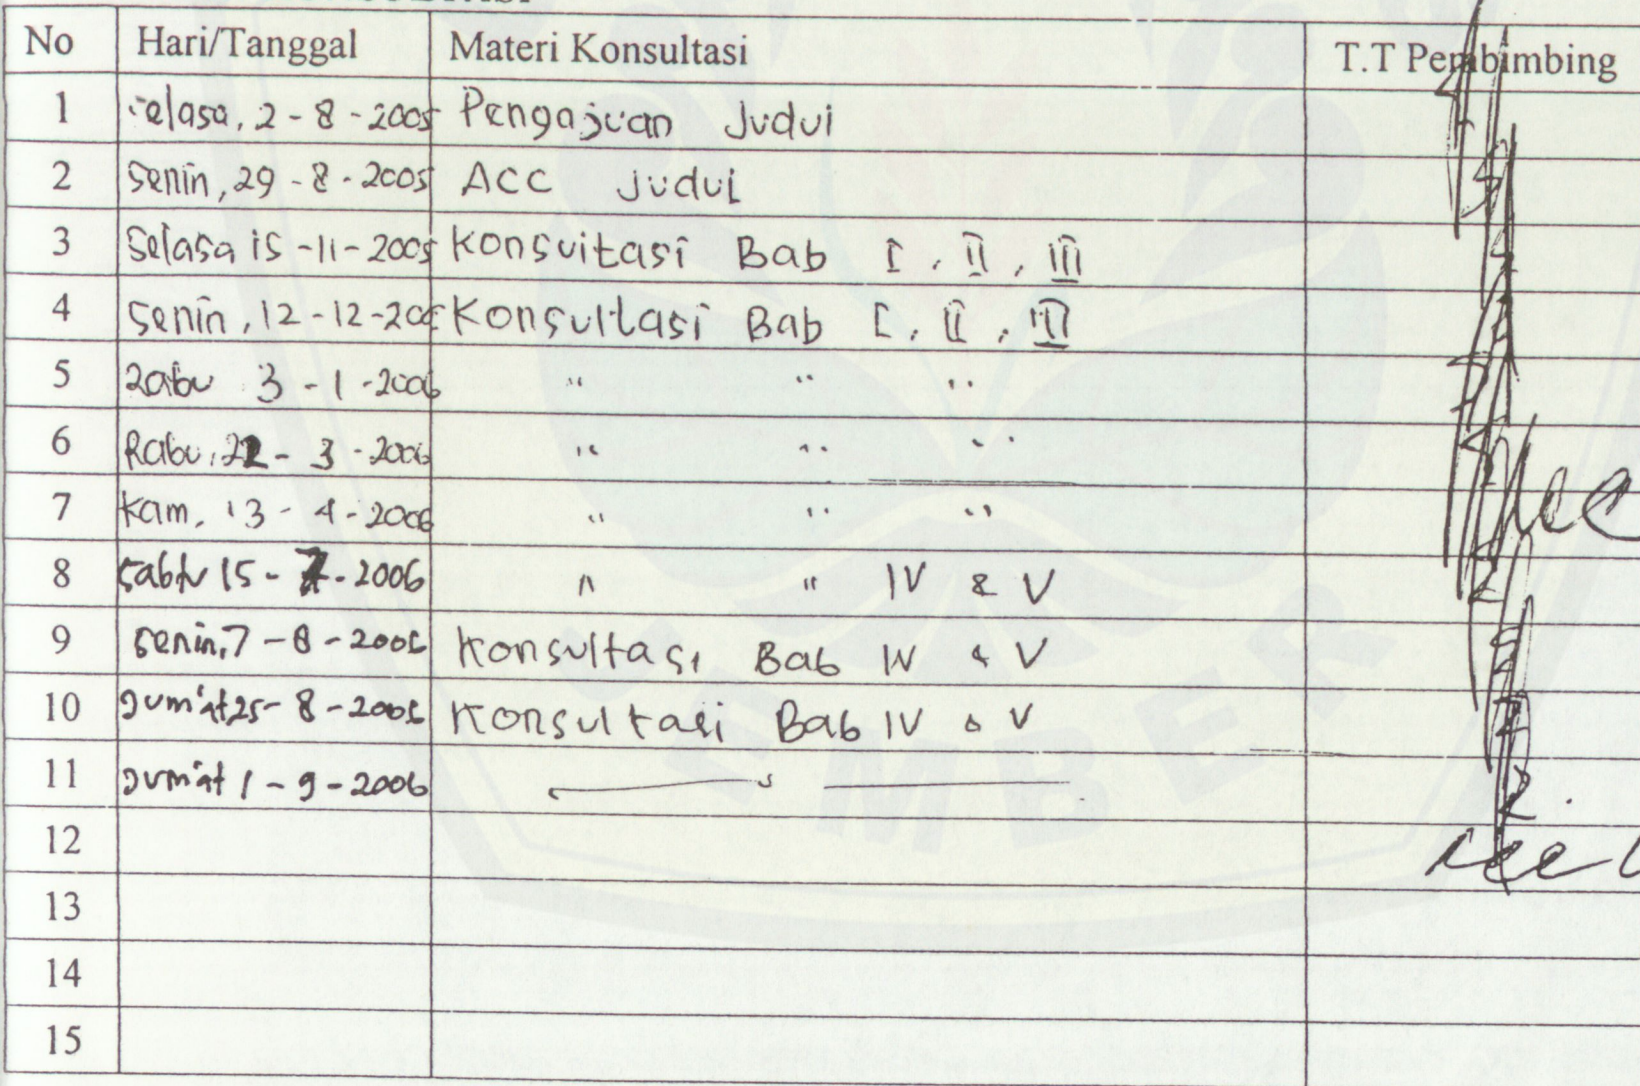 No Hari/Tanggal Materi Konsultasi T.T Pembimbing
1 Selasa, 2 - 8 - 2005 Pengajuan Judul
2 Senin, 29 - 8 - 2005 ACC Judul
3 Selasa 15 - 11 - 2005 Konsultasi Bab I, II, III
4 Senin, 12 - 12 - 200 Konsultasi Bab I, II, III
5 Rabu 3 - 1 - 2006 " " "
6 Rabu, 22 - 3 - 2006 " " "
7 Kam, 13 - 4 - 2006 " " "
8 Sabtu 15 - 7 - 2006 " " IV & V
9 Senin, 7 - 8 - 2006 Konsultasi Bab IV & V
10 Jum'at 25 - 8 - 2006 Konsultasi Bab IV & V
11 Jum'at 1 - 9 - 2006
12
13
14
15
EMBER